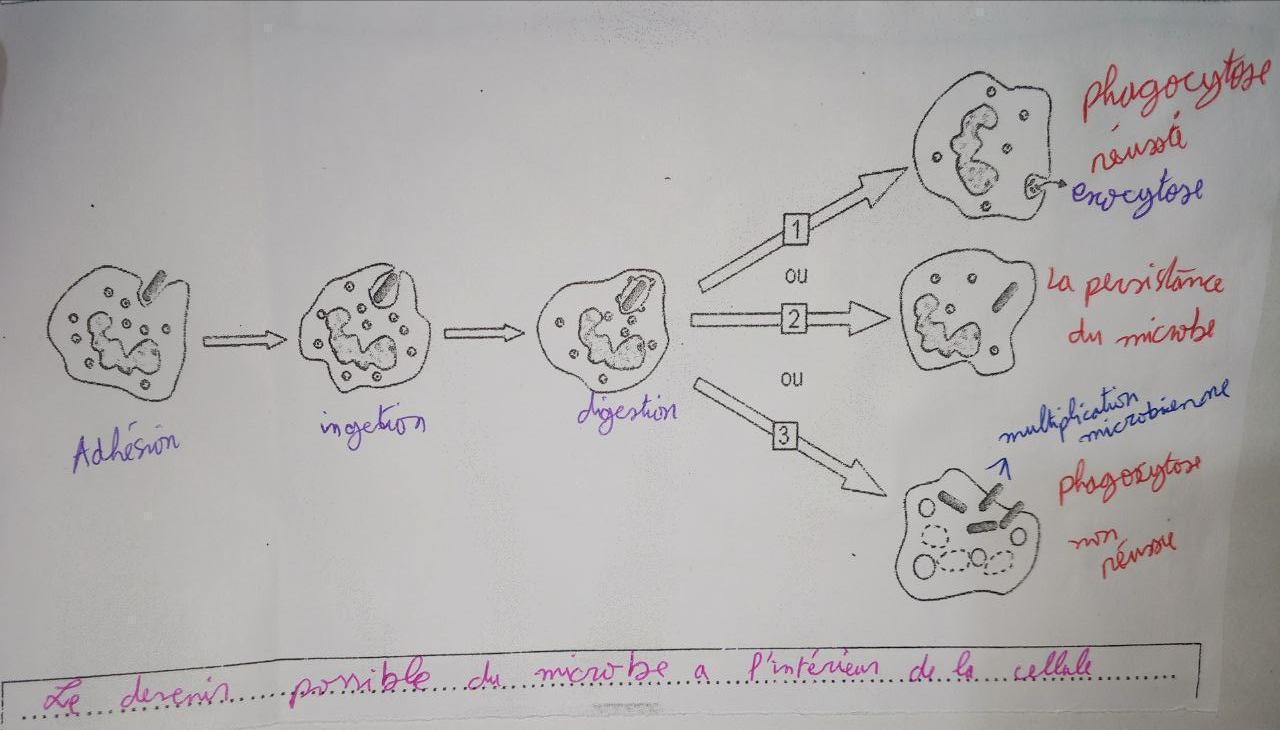 phagocytose
réussié
exocytose
1
ou
La persistance
du microbe
2
ou
multiplication
microbienne
3
phagocytose
non
réussie
Adhésion
ingetion
digestion
Le devenir possible du microbe a l'intérieur de la cellule